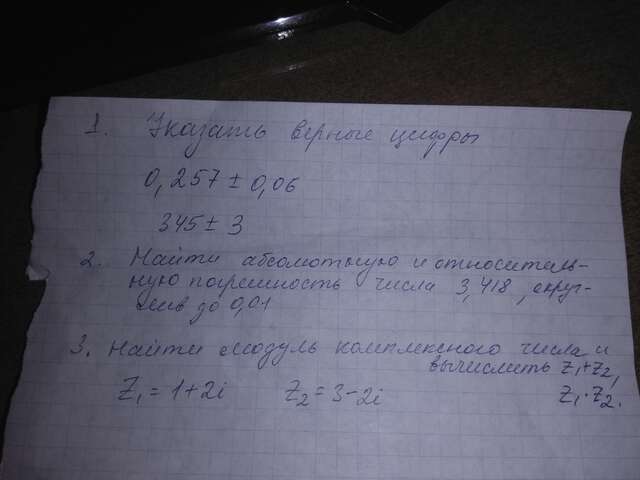 1. Указать верные цифры
0,257 ± 0,06
345 ± 3
2. Найти абсолютную и относитель-
ную погрешность числа 3,418, округ-
лив до 0,01
3. Найти модуль комплексного числа и
вычислить z₁+z₂,
z₁ = 1+2i z₂ = 3-2i z₁·z₂.